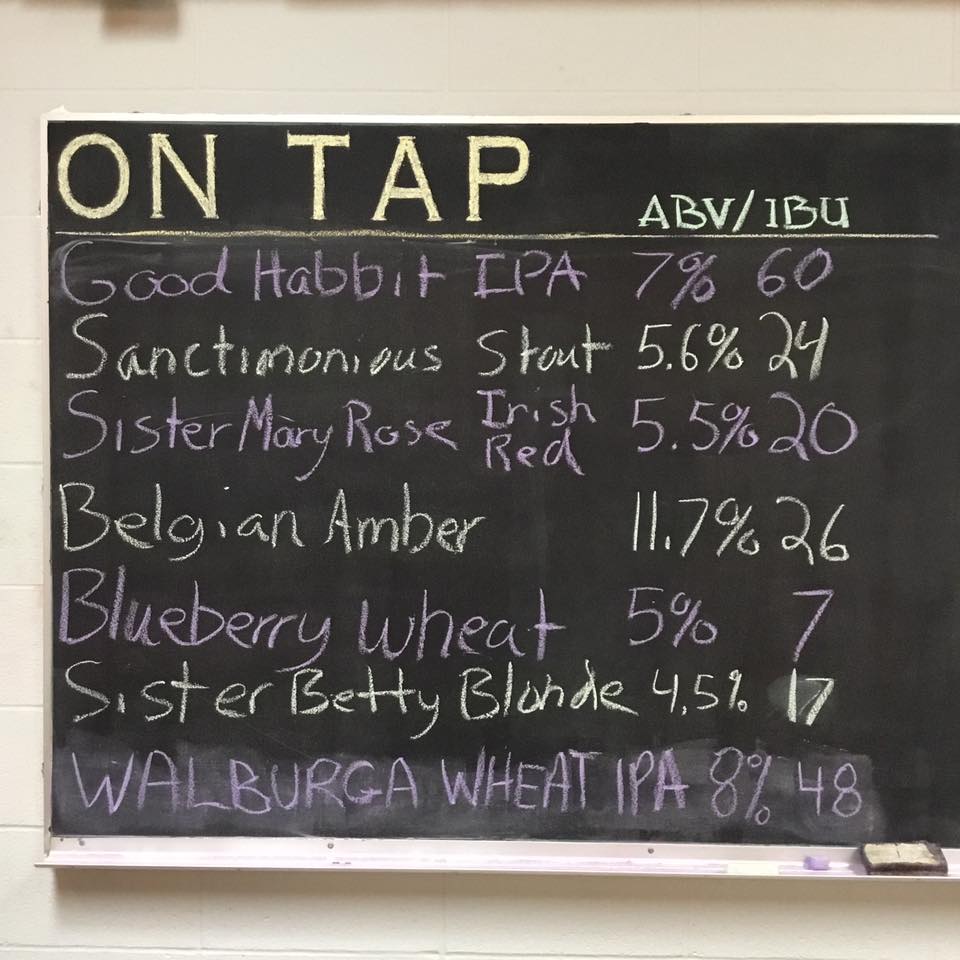 ON TAP ABV/IBU
Good Habbit IPA 7% 60
Sanctimonious Stout 5.6% 24
Sister Mary Rose Irish Red 5.5% 20
Belgian Amber 11.7% 26
Blueberry Wheat 5% 7
Sister Betty Blonde 4.5% 17
WALBURGA WHEAT IPA 8% 48